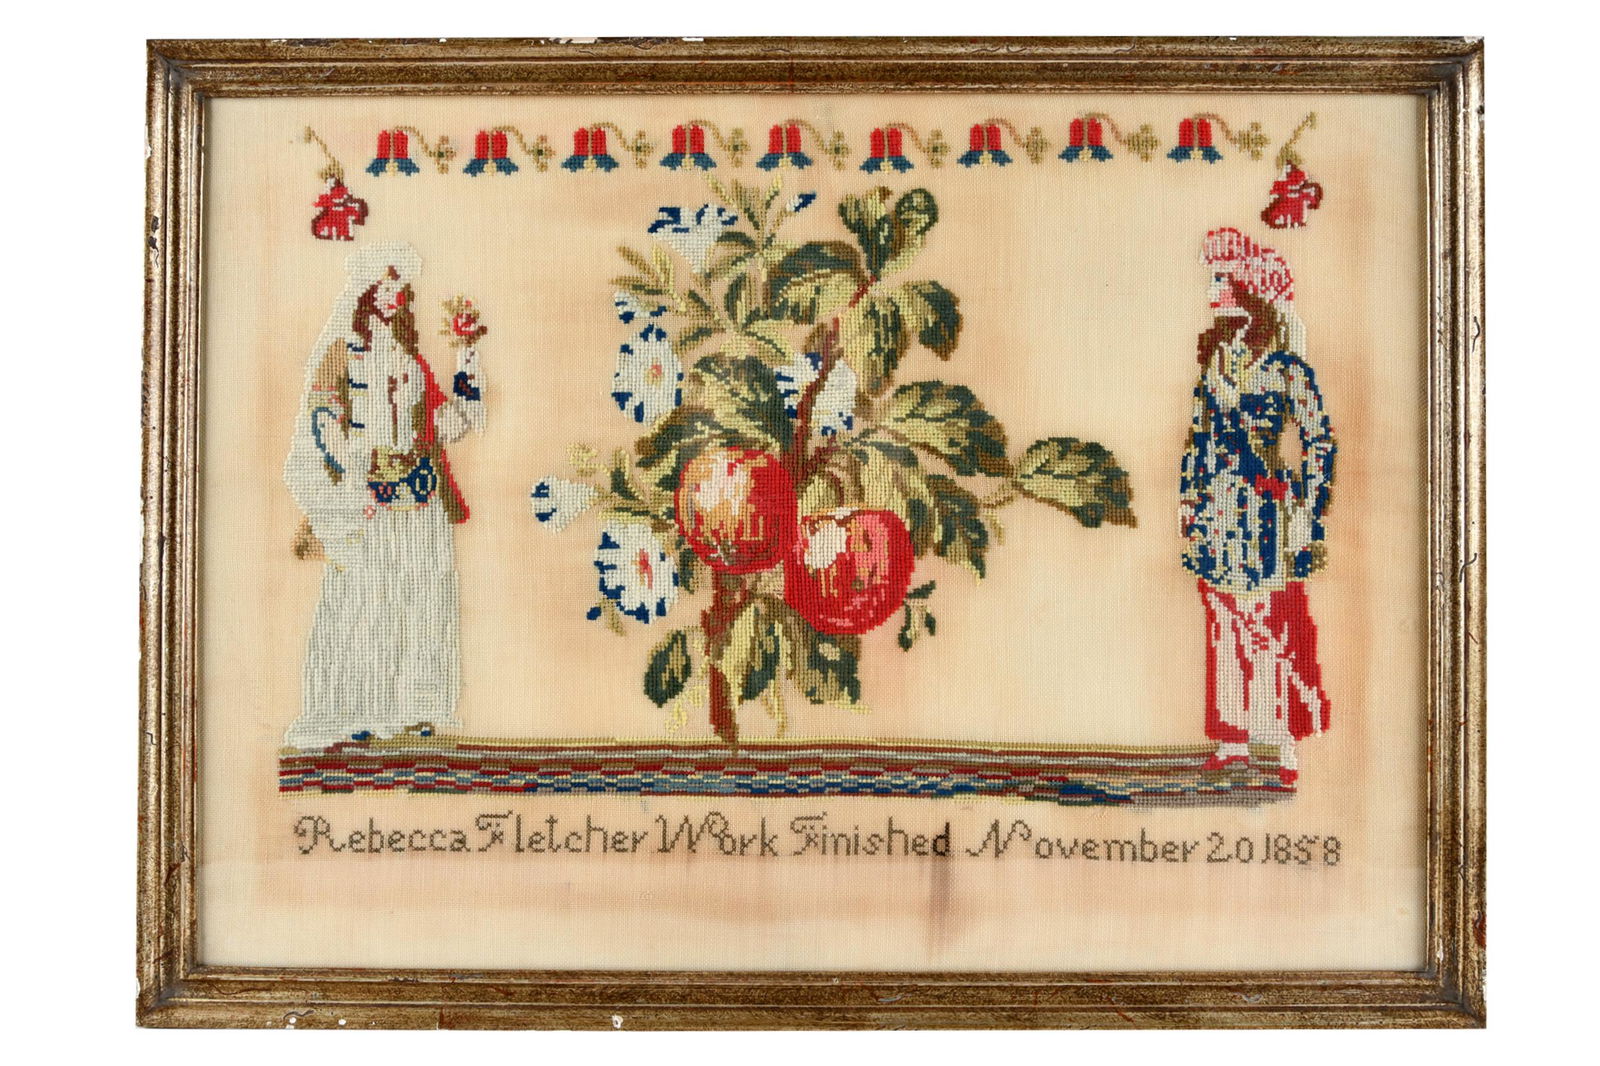 Rebecca Fletcher Work Finished November 20 1858